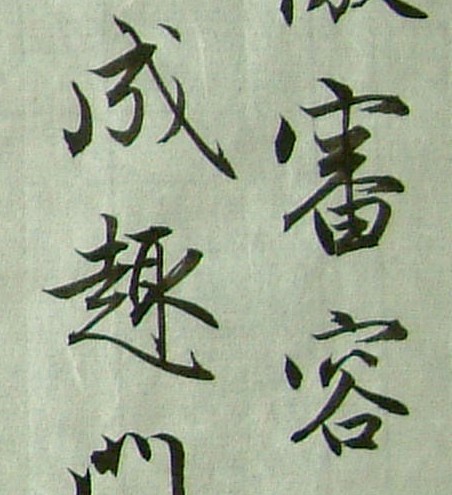 審容
成趣門